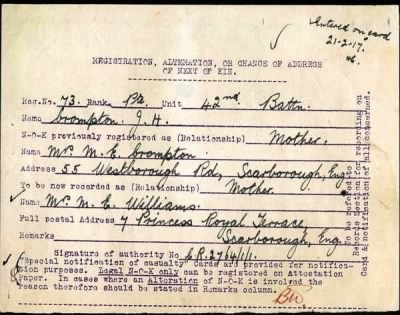 Entered on card
21-2-17.
REGISTRATION, ALTERATION, OR CHANGE OF ADDRESS
OF NEXT OF KIN.
Reg.No. 73. Rank Pte. Unit 42nd Battn.
Name Crompton J.H.
N-O-K previously registered as (Relationship) Mother.
Name Mrs M. E. Crompton
Address 55 Westborough Rd, Scarborough, Eng.
To be now recorded as (Relationship) Mother.
Name Mrs M. E. Williams.
Full postal Address 7 Princess Royal Terrace,
Remarks Scarborough, Eng.
Signature of authority No. C.R.2764/1/1.
"Special notification of casualty" Cards are provided for notifica-
tion purposes. Legal N-O-K only can be registered on Attestation
Paper. In cases where an Alteration of N-O-K is involved the
reason therefore should be stated in Remarks column.
To be referred to
Records Section for recording on
Card & notification of all concerned.